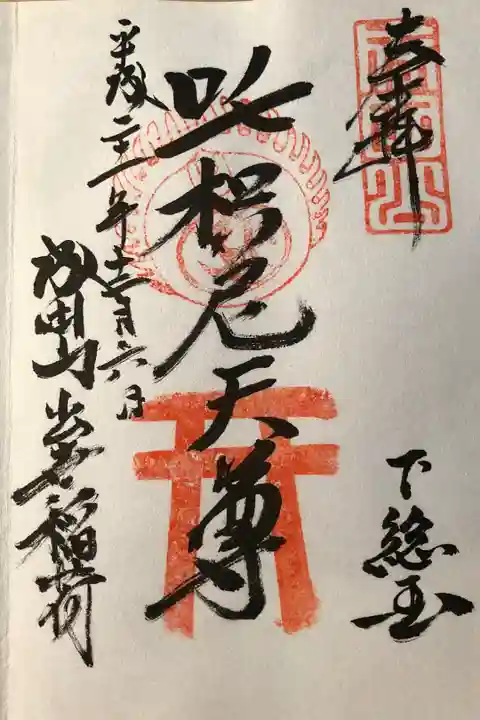 奉拝
下総国
吒枳尼天尊
平成二十二年十二月六日
成田山出世稲荷